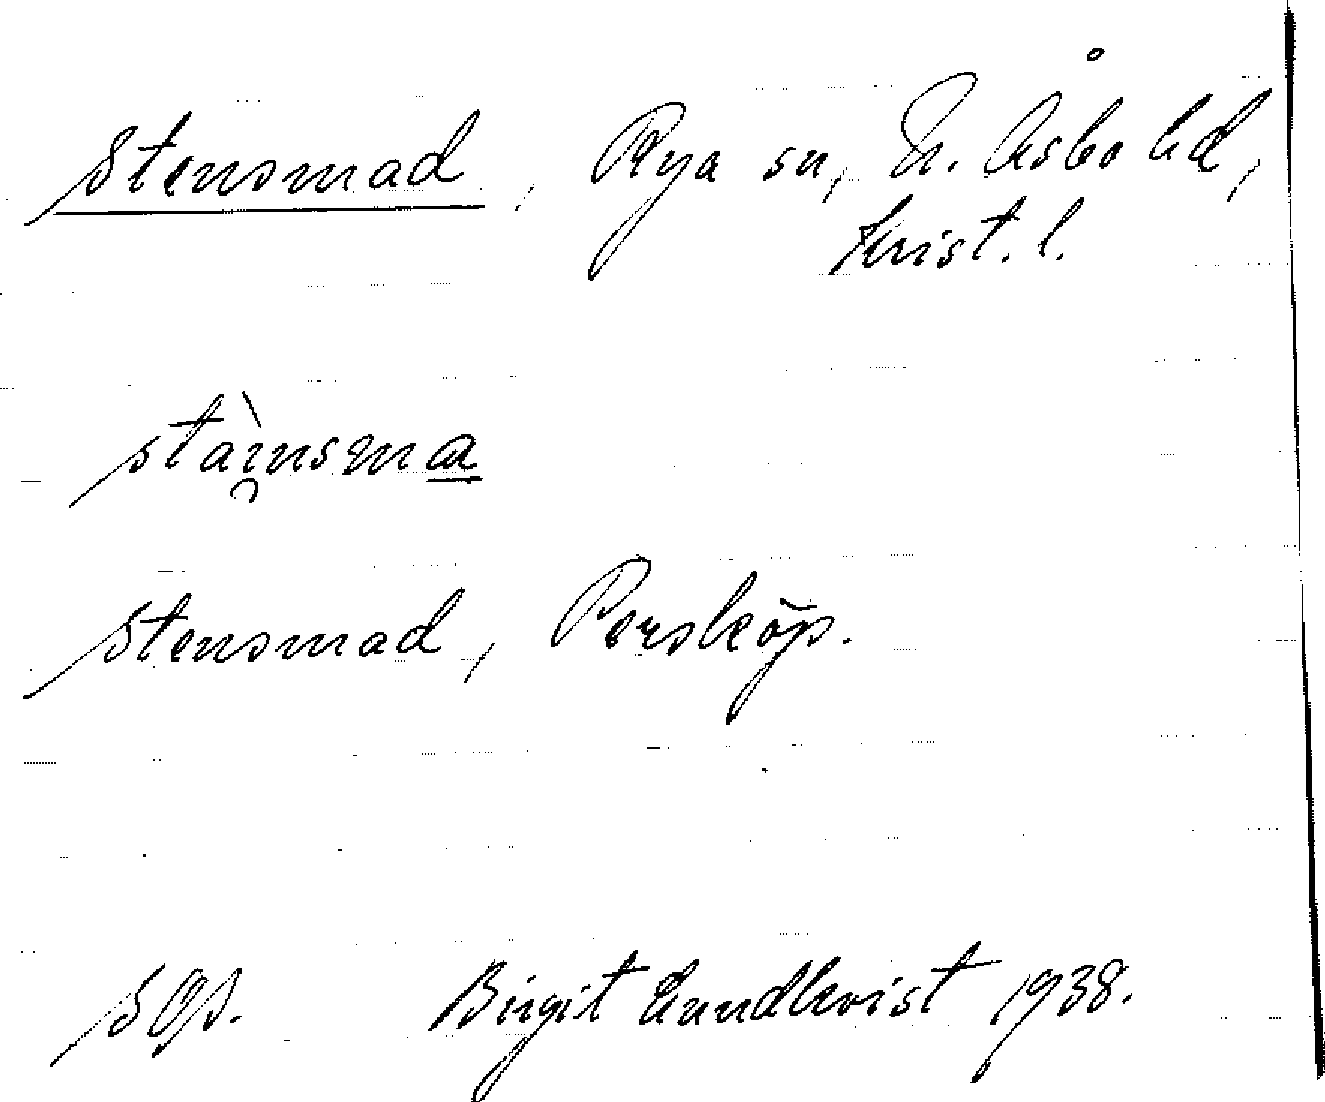 Stensmad, Rya sn, N. Åsbo hd,
Krist. l.
stàı̯nsma̲
Stensmad, Persköp.
Birgit Lundkvist 1938.